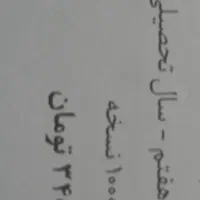 هفتم - سال تحصیلی
۱۰۰۰ نسخه
تومان